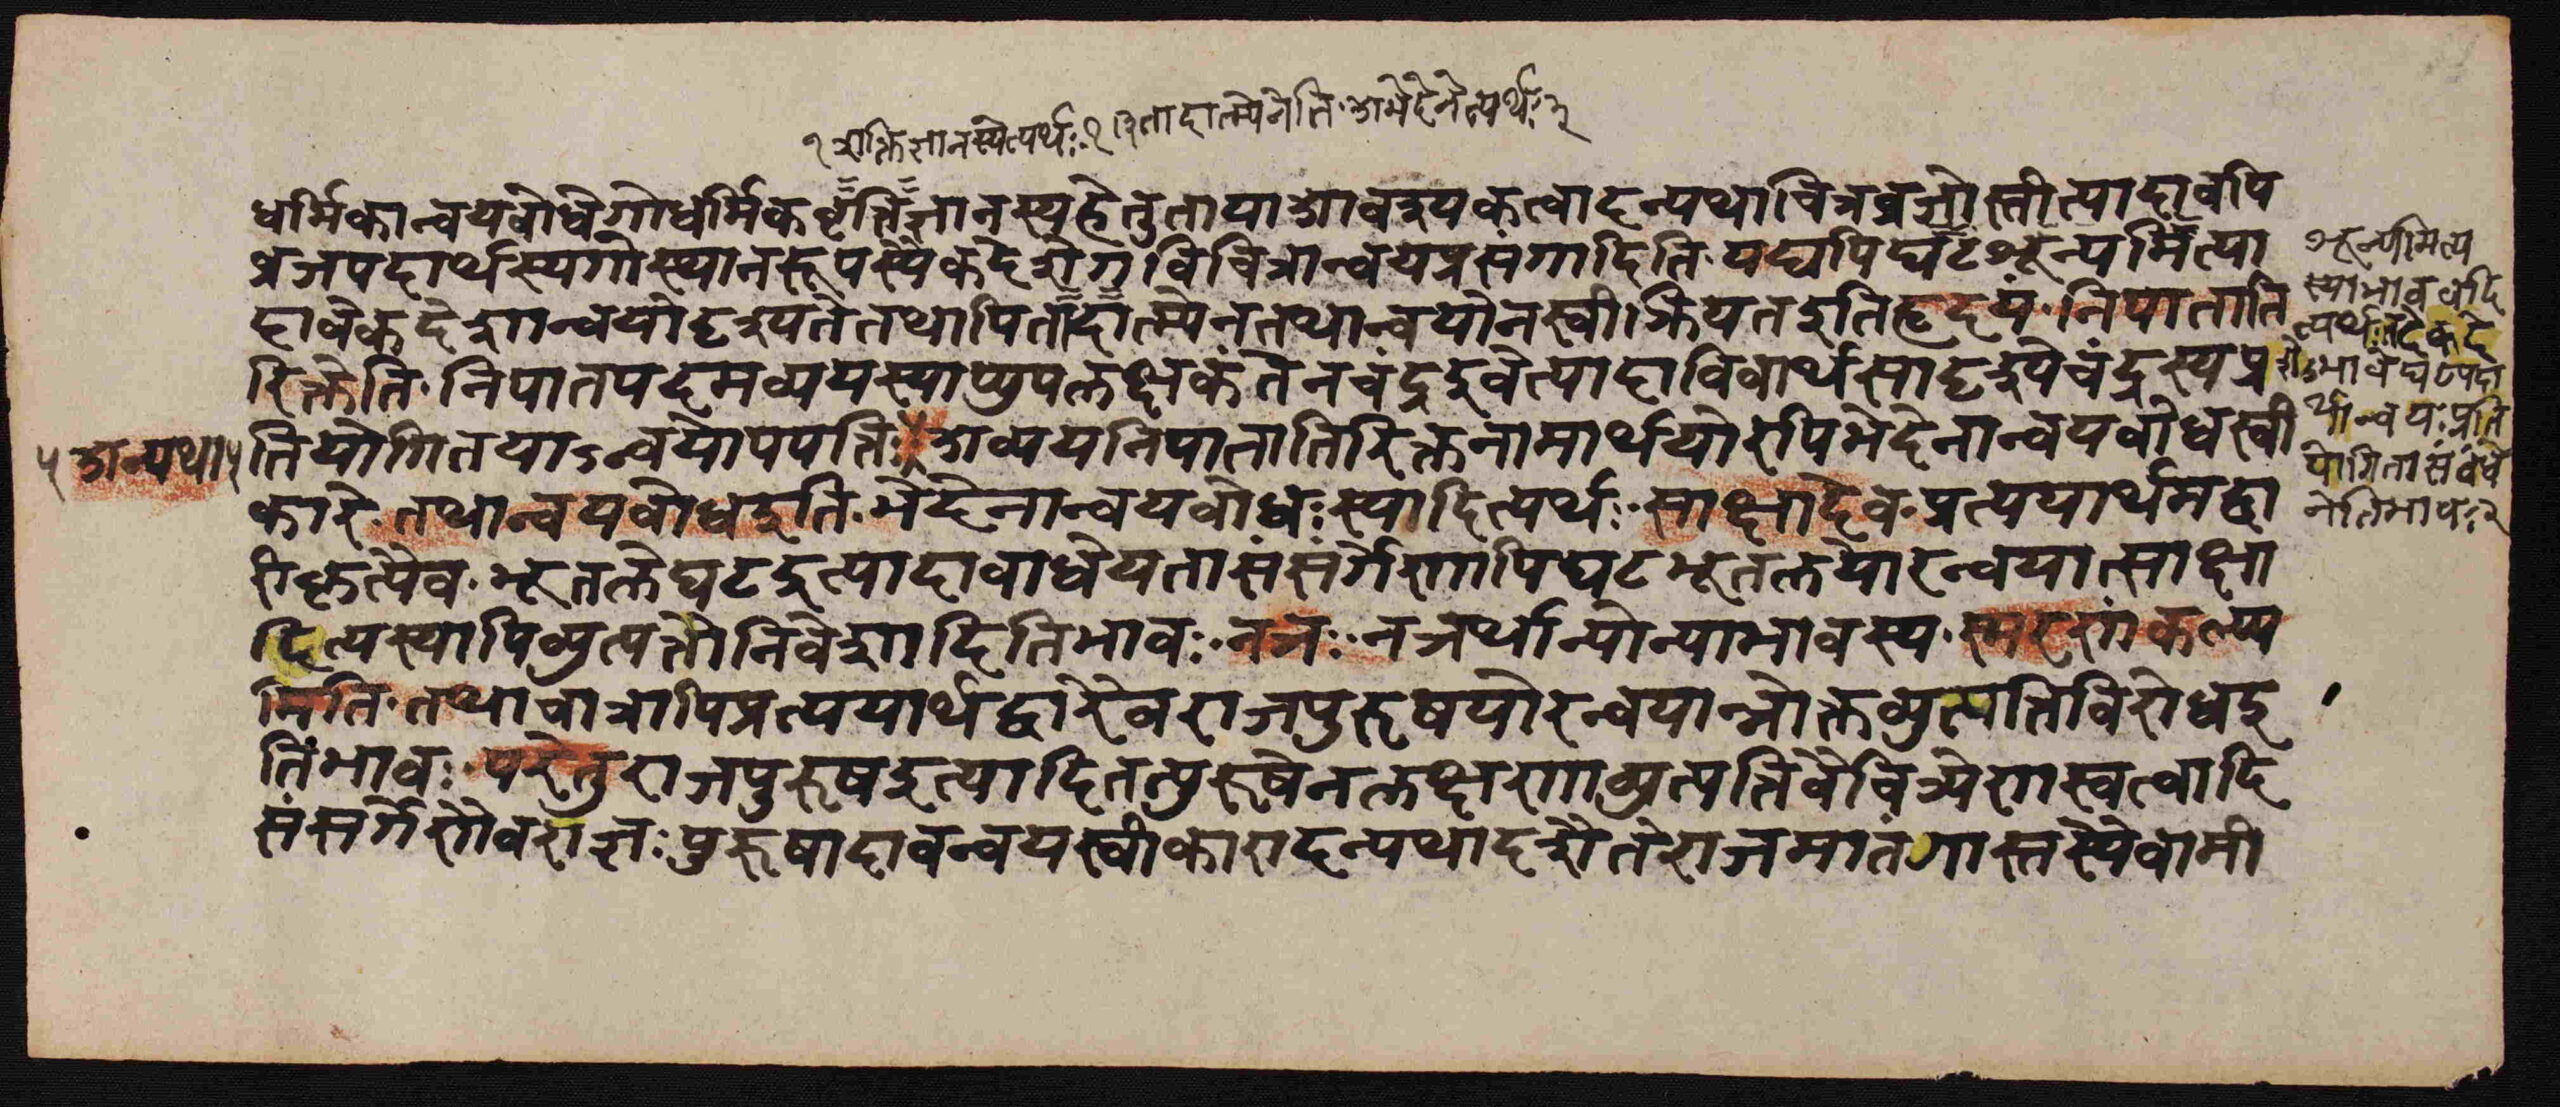 १ शक्तिज्ञानस्येत्यर्थः १ २ तादात्म्येनेति अभेदेनेत्यर्थः २
धर्मिकान्वयबोधे गोधर्मिकवृत्तिज्ञानस्य हेतुताया आवश्यकत्वादन्यथा चित्रव्रजोस्तीत्यादावपि
व्रजपदार्थस्य गोस्थानरूपस्यैकदेशे गवि चित्रान्वयप्रसंगादिति यद्यपि घटशून्यमित्या
दावेकदेशान्वयो दृश्यते तथापि तादात्म्येन तथान्वयो न स्वीक्रियत इति हृदयं निपाताति
रिक्तेति निपातपदमव्ययस्याप्युपलक्षकं तेन चंद्र इवेत्यादाविवार्थसादृश्ये चंद्रस्य प्र
तियोगितयाऽन्वयोपपत्तिः अव्ययनिपातातिरिक्तनामार्थयोरपि भेदेनान्वयबोधस्वी
कारे तथान्वयबोध इति भेदेनान्वयबोधः स्यादित्यर्थः साक्षादेव प्रत्ययार्थमद्वा
रीकृत्यैव भूतले घट इत्यादावाधेयतासंसर्गेणापि घटभूतलयोरन्वयात्साक्षा
दित्यस्यापि व्युत्पत्तौ निवेशादिति भावः नञः नञर्थान्योन्याभावस्य स्मरणं कल्प्य
मिति तथा चात्रापि प्रत्ययार्थद्वारैव राजपुरुषयोरन्वयान्नोक्तव्युत्पत्तिविरोध इ
ति भावः परे तु राजपुरुष इत्यादितत्पुरुषे न लक्षणा व्युत्पत्तिवैचित्र्येण स्वत्वादि
संसर्गेणैव राज्ञः पुरुषादावन्वयस्वीकारादन्यथा दशैते राजमातंगास्तस्यैवामी
५ अन्यथा ५
शून्यमित्य
स्याभाववदि
त्यर्थः तदेकदे
शेऽभावे घटपदा
र्थान्वयः प्रति
योगितासंबंधे
नेति भावः २